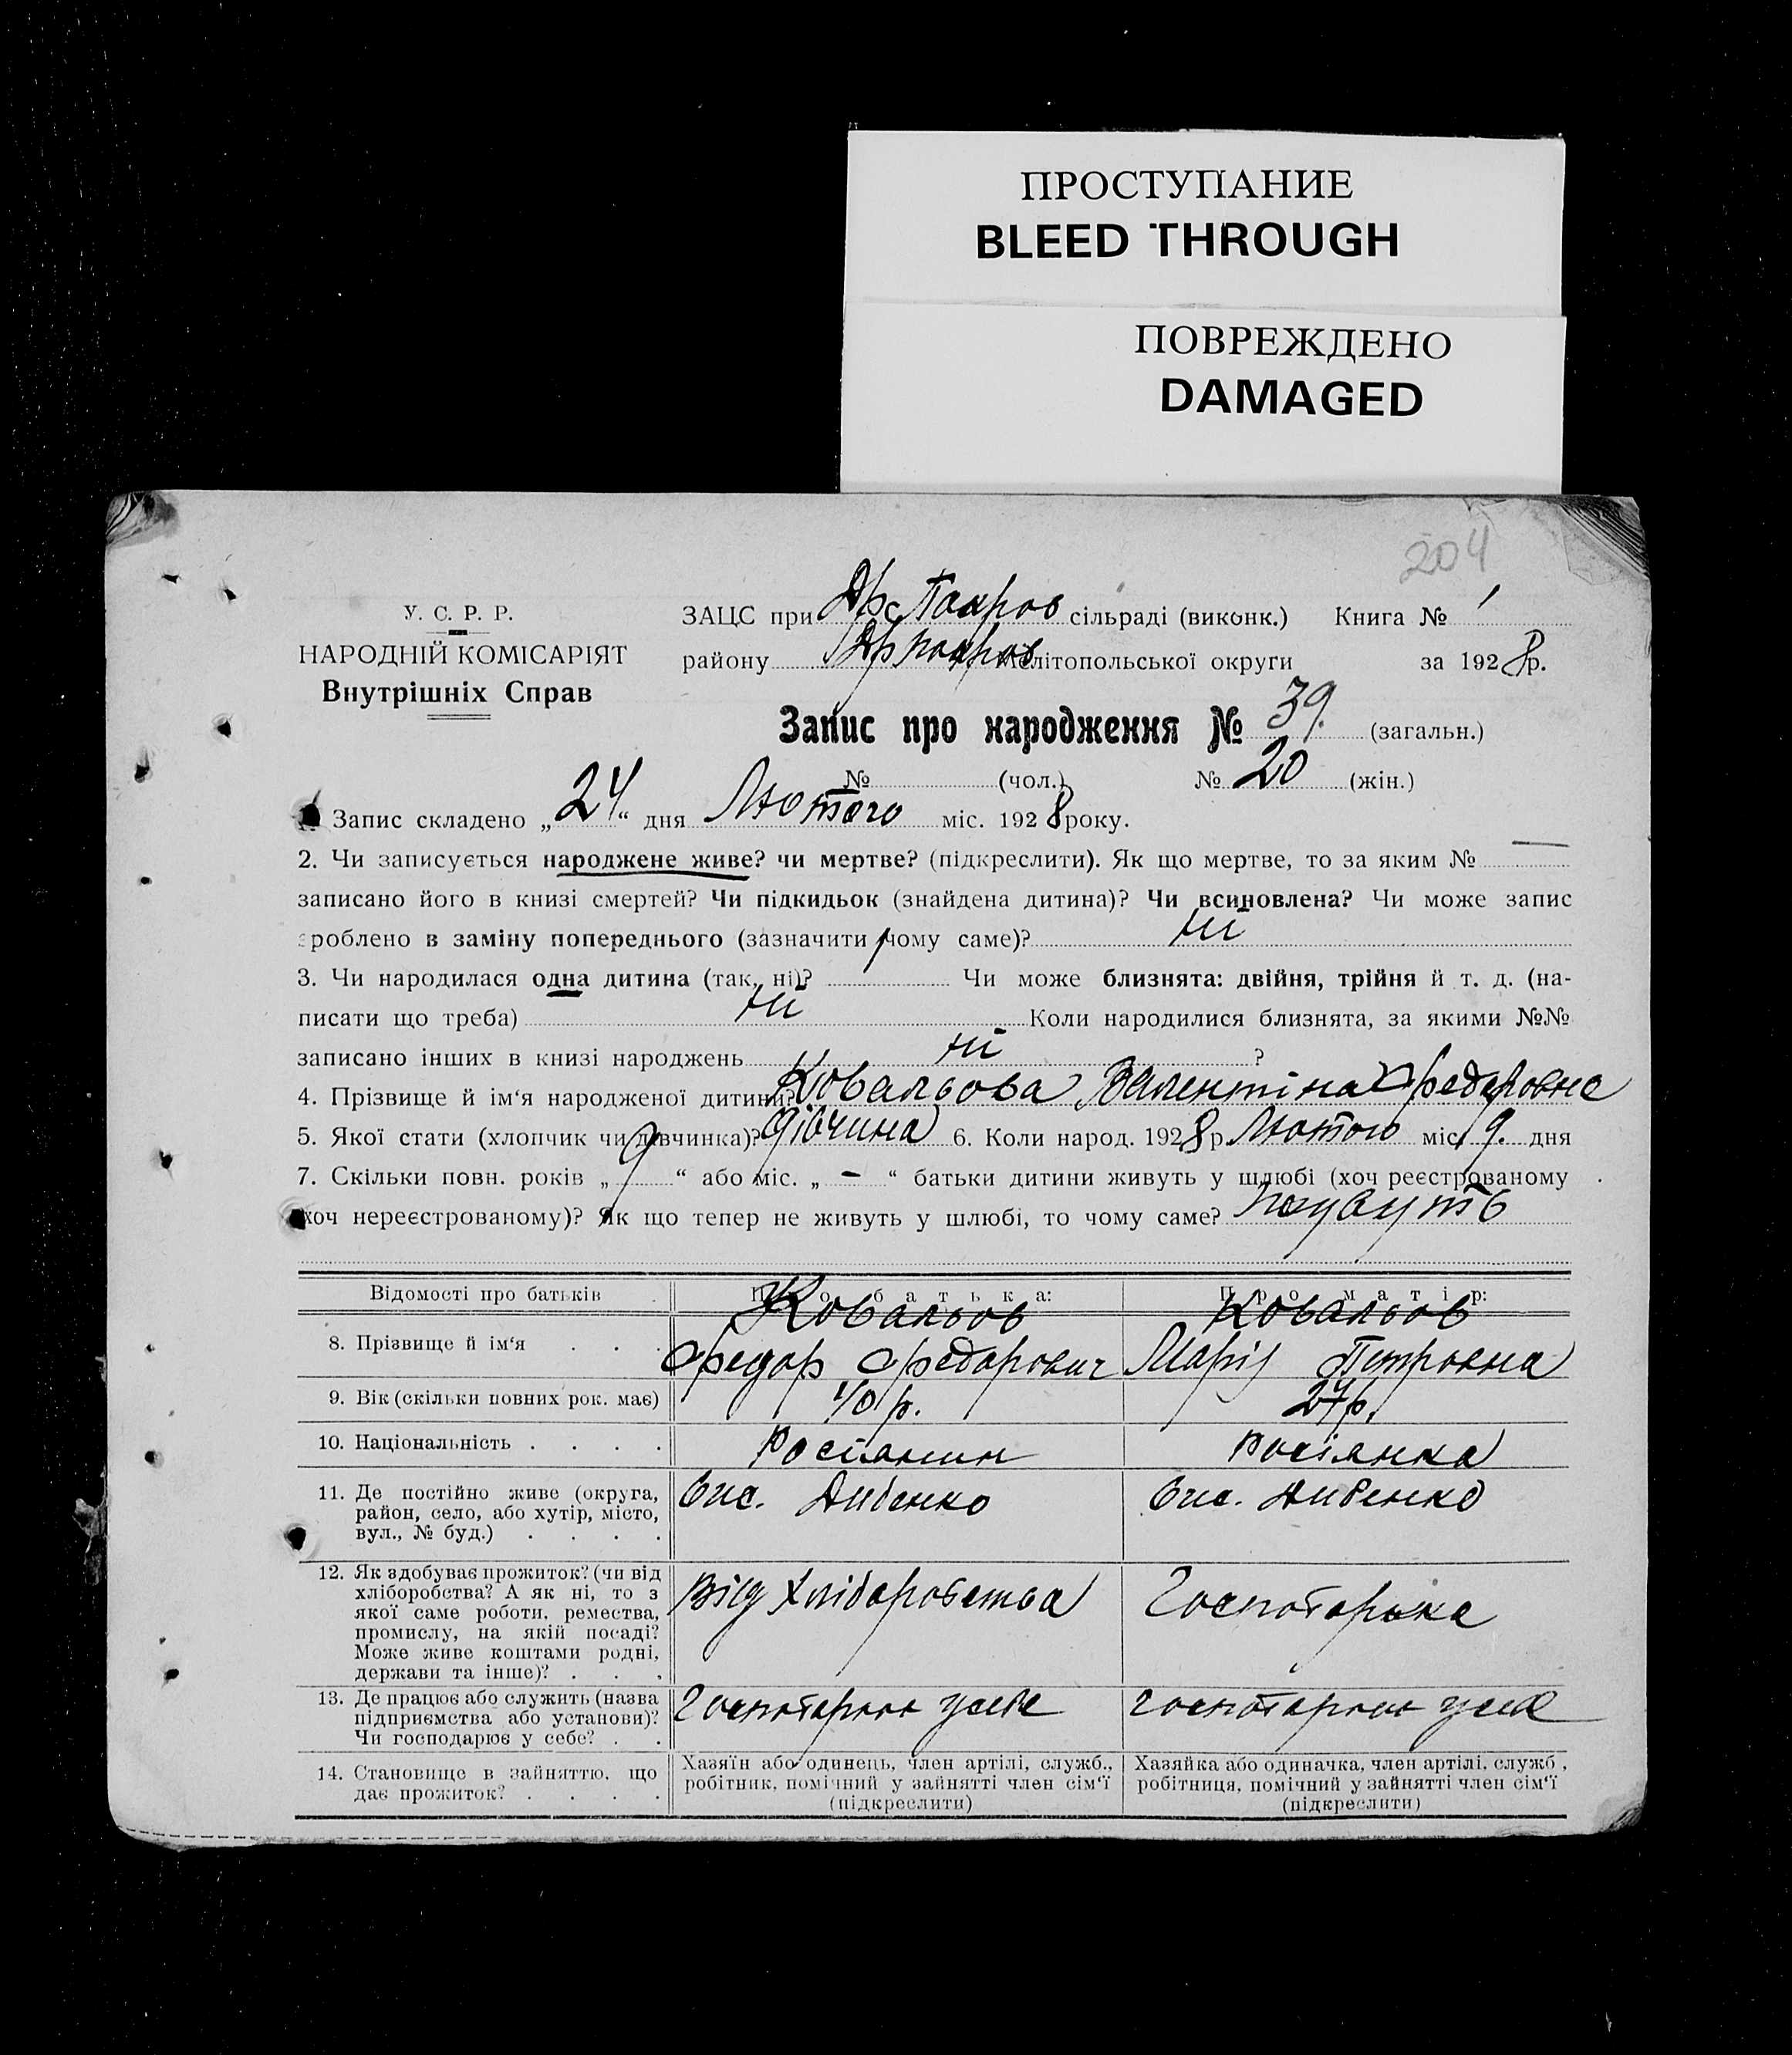 ПРОСТУПАНИЕ
BLEED THROUGH
ПОВРЕЖДЕНО
DAMAGED
204
У. С. Р. Р.
НАРОДНІЙ КОМІСАРІЯТ
Внутрішніх Справ
ЗАЦС при сільраді (виконк.) Книга № 1
району Мелітопольської округи за 1928р.
Запис про народження № 39. (загальн.)
№ (чол.) № 20 (жін.)
Запис складено „24“ дня Лютого міс. 1928 року.
2. Чи записується народжене живе? чи мертве? (підкреслити). Як що мертве, то за яким № —
записано його в книзі смертей? Чи підкидьок (знайдена дитина)? Чи всиновлена? Чи може запис
зроблено в заміну попереднього (зазначити чому саме)? ні
3. Чи народилася одна дитина (так, ні)? Чи може близнята: двійня, трійня й т. д. (на-
писати що треба) ні Коли народилися близнята, за якими №№
записано інших в книзі народжень ні ?
4. Прізвище й ім‘я народженої дитини? Ковальова Валентіна Федоровна
5. Якої стати (хлопчик чи дівчинка)? дівчина 6. Коли народ. 1928 р. Лютого міс. 9. дня
7. Скільки повн. років „9“ або міс. „–“ батьки дитини живуть у шлюбі (хоч реєстрованому
хоч нереєстрованому)? Як що тепер не живуть у шлюбі, то чому саме?
Відомості про батьків Про батька: Про матір:
Ковальов Ковальов
8. Прізвище й ім‘я Федор Федорович Марія Петровна
9. Вік (скільки повних рок. має) 40 р. 27 р.
10. Національність Росіянин Росіянка
11. Де постійно живе (округа, район, село, або хутір, місто, вул., № буд.) Вис. Дибенко Вис. Дибенко
12. Як здобуває прожиток? (чи від хліборобства? А як ні, то з якої саме роботи, ремества, промислу, на якій посаді? Може живе коштами родні, держави та інше)? Від хліборобства Госпотарька
13. Де працює або служить (назва підприємства або установи)? Чи господарює у себе?
14. Становище в зайняттю, що дає прожиток? Хазяїн або одинець, член артілі, служб., робітник, помічний у зайнятті член сім‘ї (підкреслити) Хазяйка або одиначка, член артілі, служб., робітниця, помічний у зайнятті член сім‘ї (підкреслити)